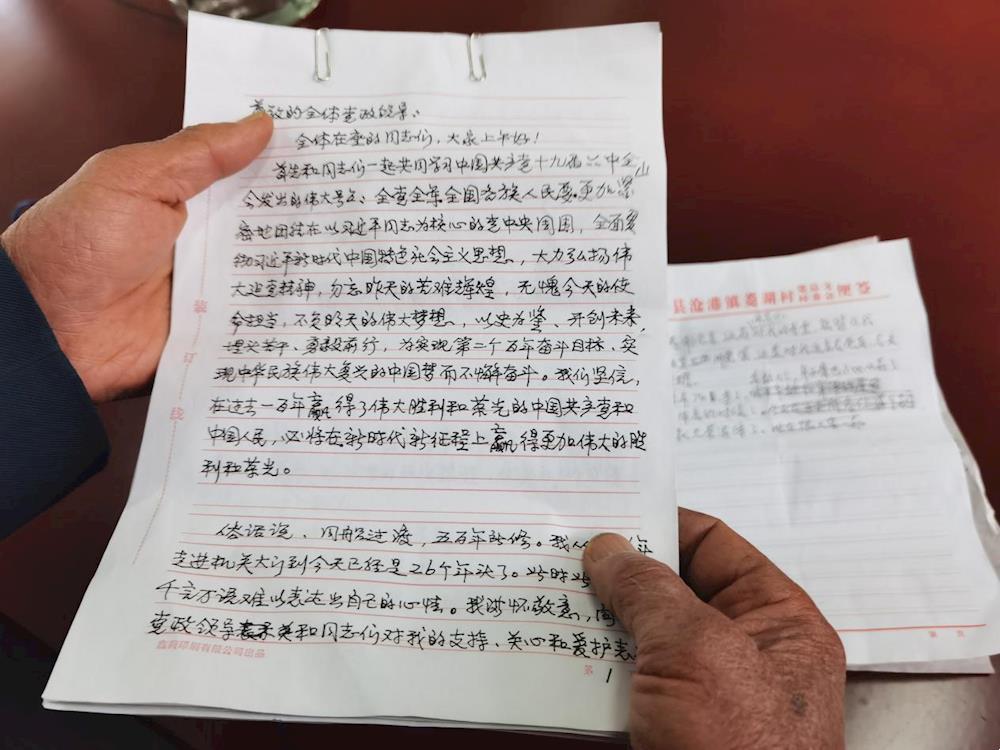 尊敬的全体党政领导、
全体在座的同志们，大家上午好！
首先和同志们一起共同学习中国共产党十九届六中全
会发出的伟大号召、全党全军全国各族人民要更加紧
密地团结在以习近平同志为核心的党中央周围，全面贯
彻习近平新时代中国特色社会主义思想，大力弘扬伟
大建党精神，勿忘昨天的苦难辉煌，无愧今天的使
命担当，不负明天的伟大梦想，以史为鉴、开创未来，
埋头苦干、勇毅前行，为实现第二个百年奋斗目标、实
现中华民族伟大复兴的中国梦而不懈奋斗。我们坚信，
在过去一百年赢得了伟大胜利和荣光的中国共产党和
中国人民，必将在新时代新征程上赢得更加伟大的胜
利和荣光。
俗语说、同船过渡，五百年所修。我
走进机关大门到今天已经是26个年头了。此时此
千言万语难以表达出自己的心情。我满怀敬意，向
党政领导和同志们对我的支持、关心和爱护表
印刷有限公司出品
第 1
装订线
县沧港镇姜湖村 便签
第 页